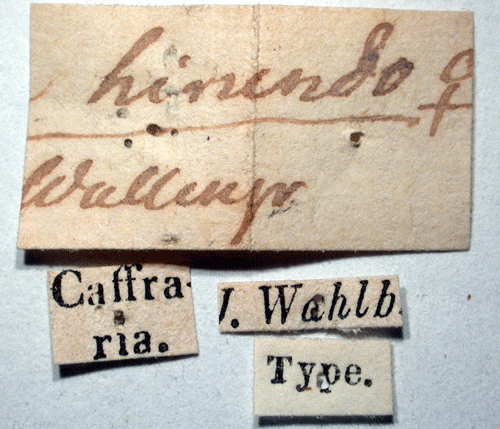 hirundo ♀
Wallengr
Caffra-
ria.
J. Wahlb.
Type.